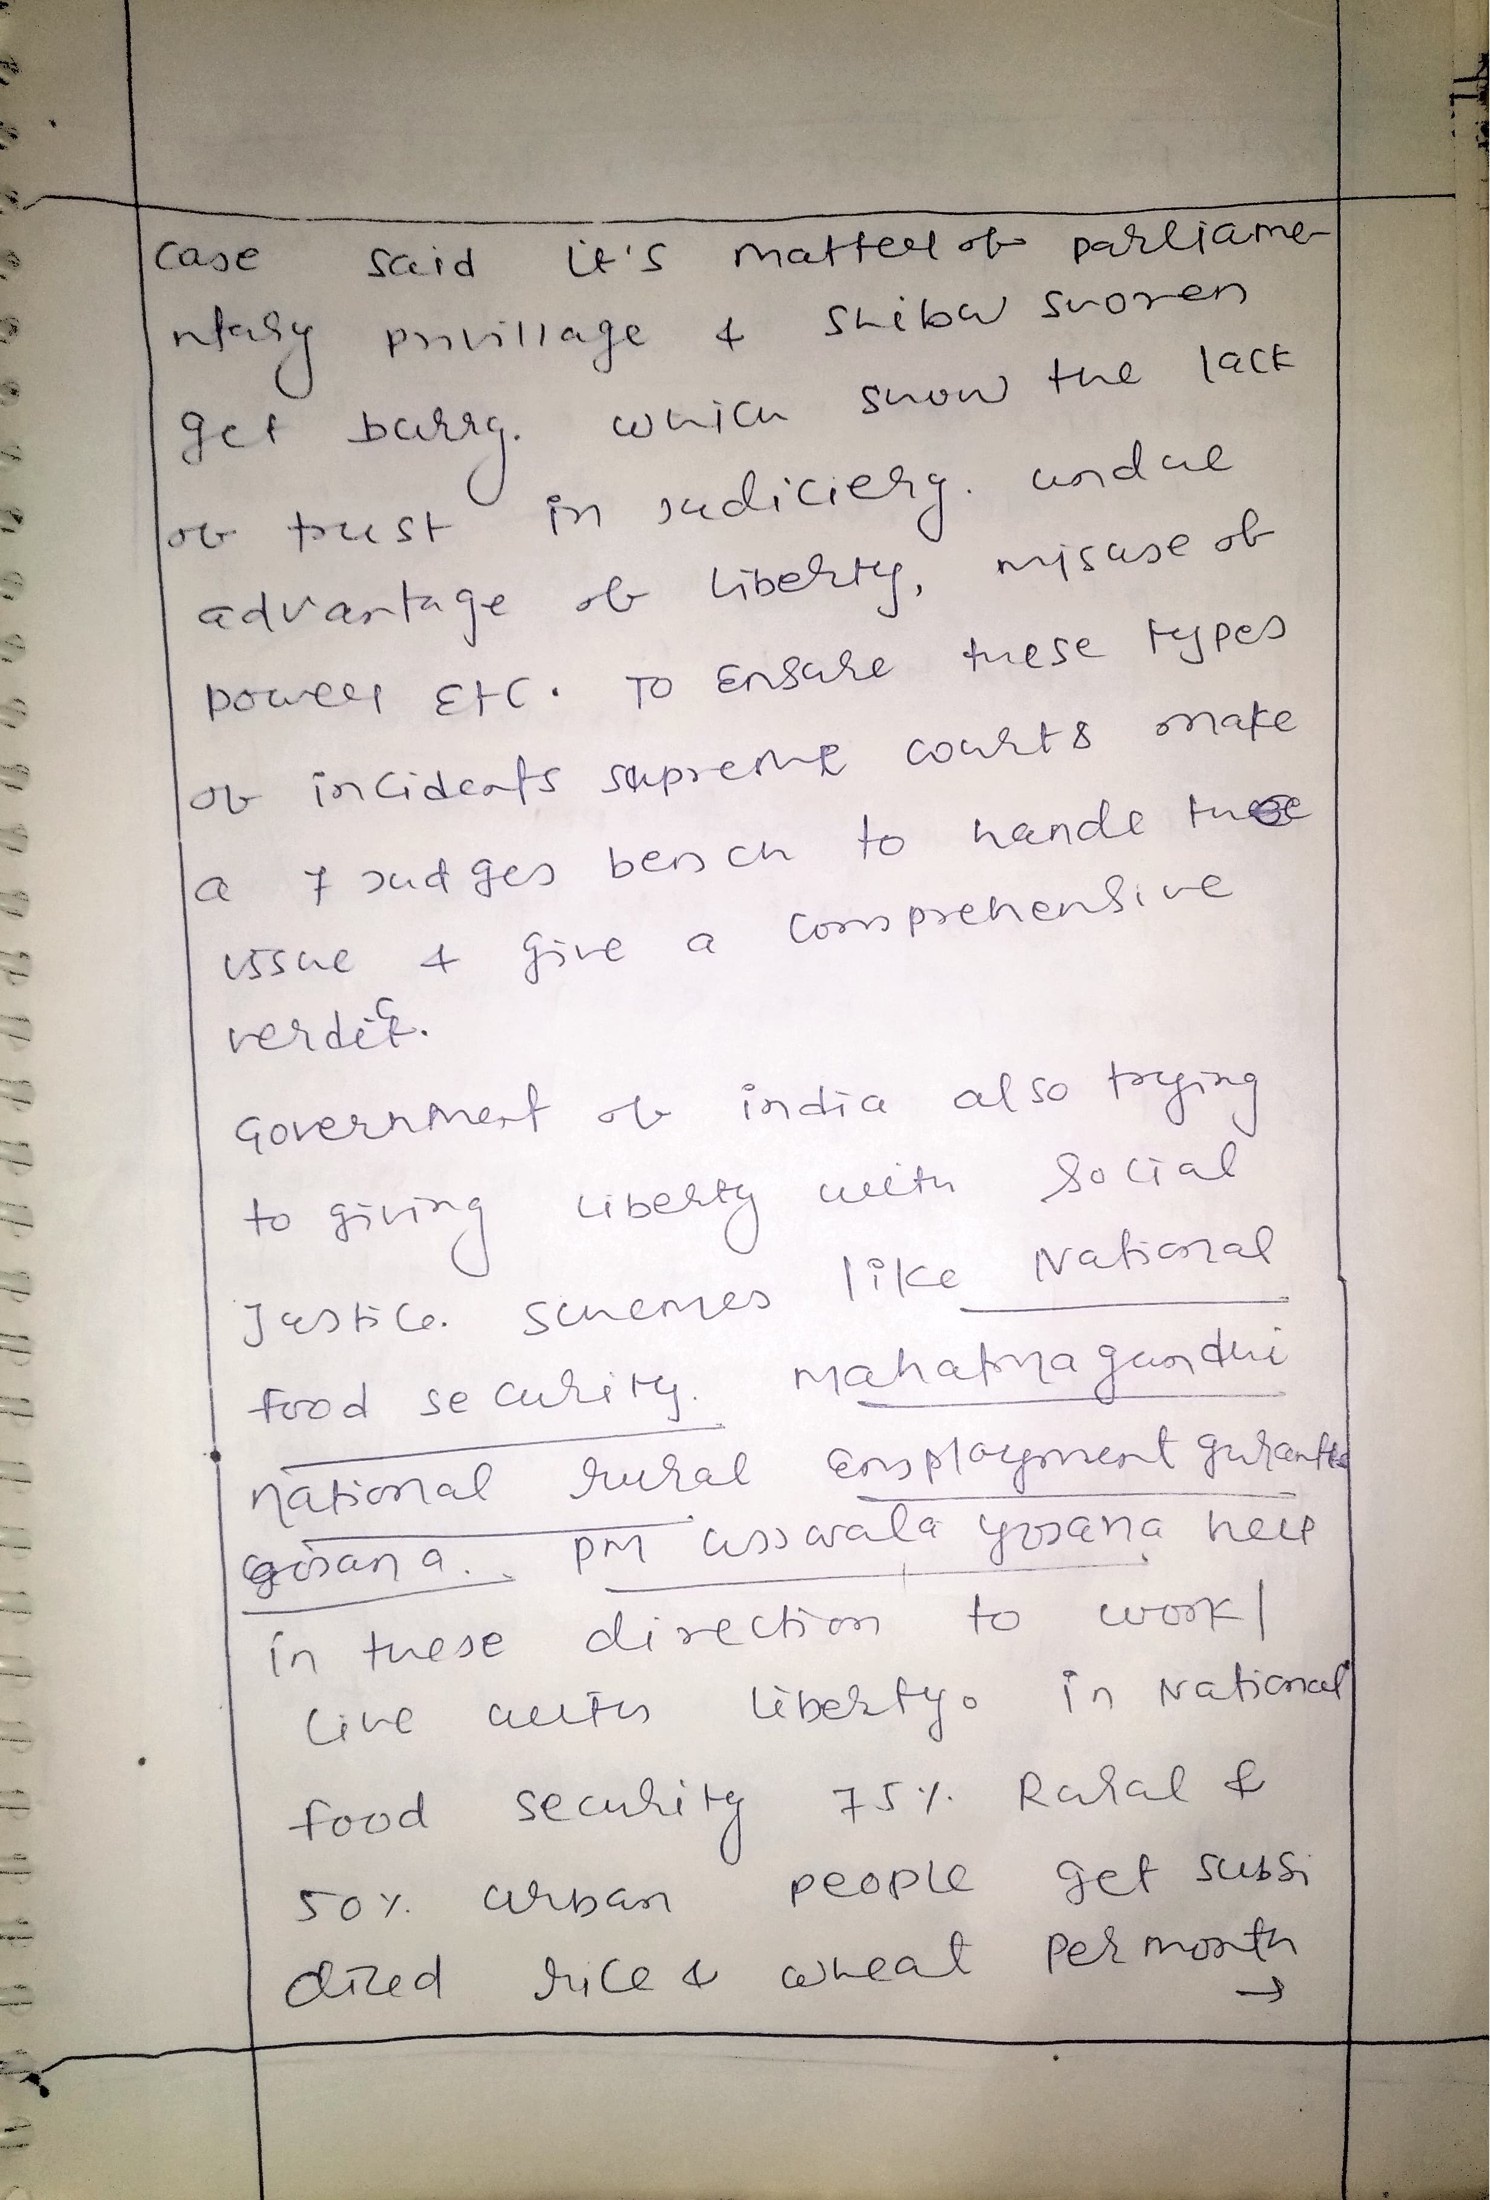 case said it's matter of parliame
ntary privillage & Shibu Suoren
get barry. which show the lack
of trust in judiciery. undue
advantage of liberty, misuse of
power Etc. To Ensure these types
of incidents supreme courts make
a 7 judges bench to handl these
issue & give a comprehensive
verdict.
Government of india also trying
to giving liberty with Social
Justice. schemes like National
food security. Mahatma gandhi
national rural Employment gurantee
yojana. PM ujjwala yojana help
in these direction to work/
live with liberty. in National
food security 75% Rural &
50% urban people get subsi
dized rice & wheat Per month
→